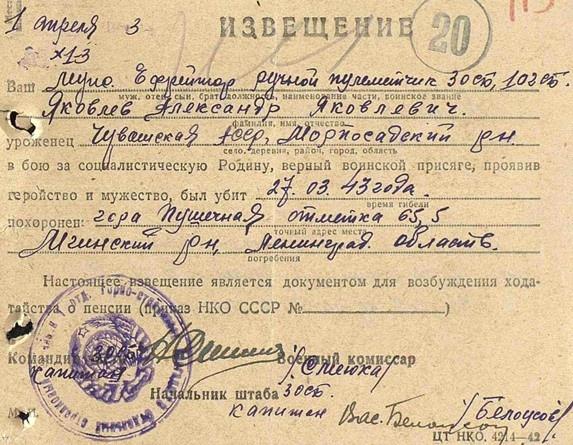 1 апреля 3
ИЗВЕЩЕНИЕ
20
№13
Ваш муж Ефрейтор ручной пулеметчик 3осб, 10
муж, отец, сын, брат, должность, наименование части, воинское звание
Яковлев Александр Яковлевич.
фамилия, имя, отчество
уроженец Чувашская АССР, Морпосадский рн.
село, деревня, район, город, область
в бою за социалистическую Родину, верный воинской присяге, проявив
геройство и мужество, был убит 27.03.43 года.
время гибели
похоронен: гора Пушечная отметка 65,5
точный адрес места
Мгинский рн, Ленинград. область.
погребения
Настоящее извещение является документом для возбуждения хода-
тайства о пенсии (приказ НКО СССР № )
Командир Военный комиссар
капитан
Начальник штаба 3осб.
капитан Белоусов
ЦТ НКО. 4214—42 г.